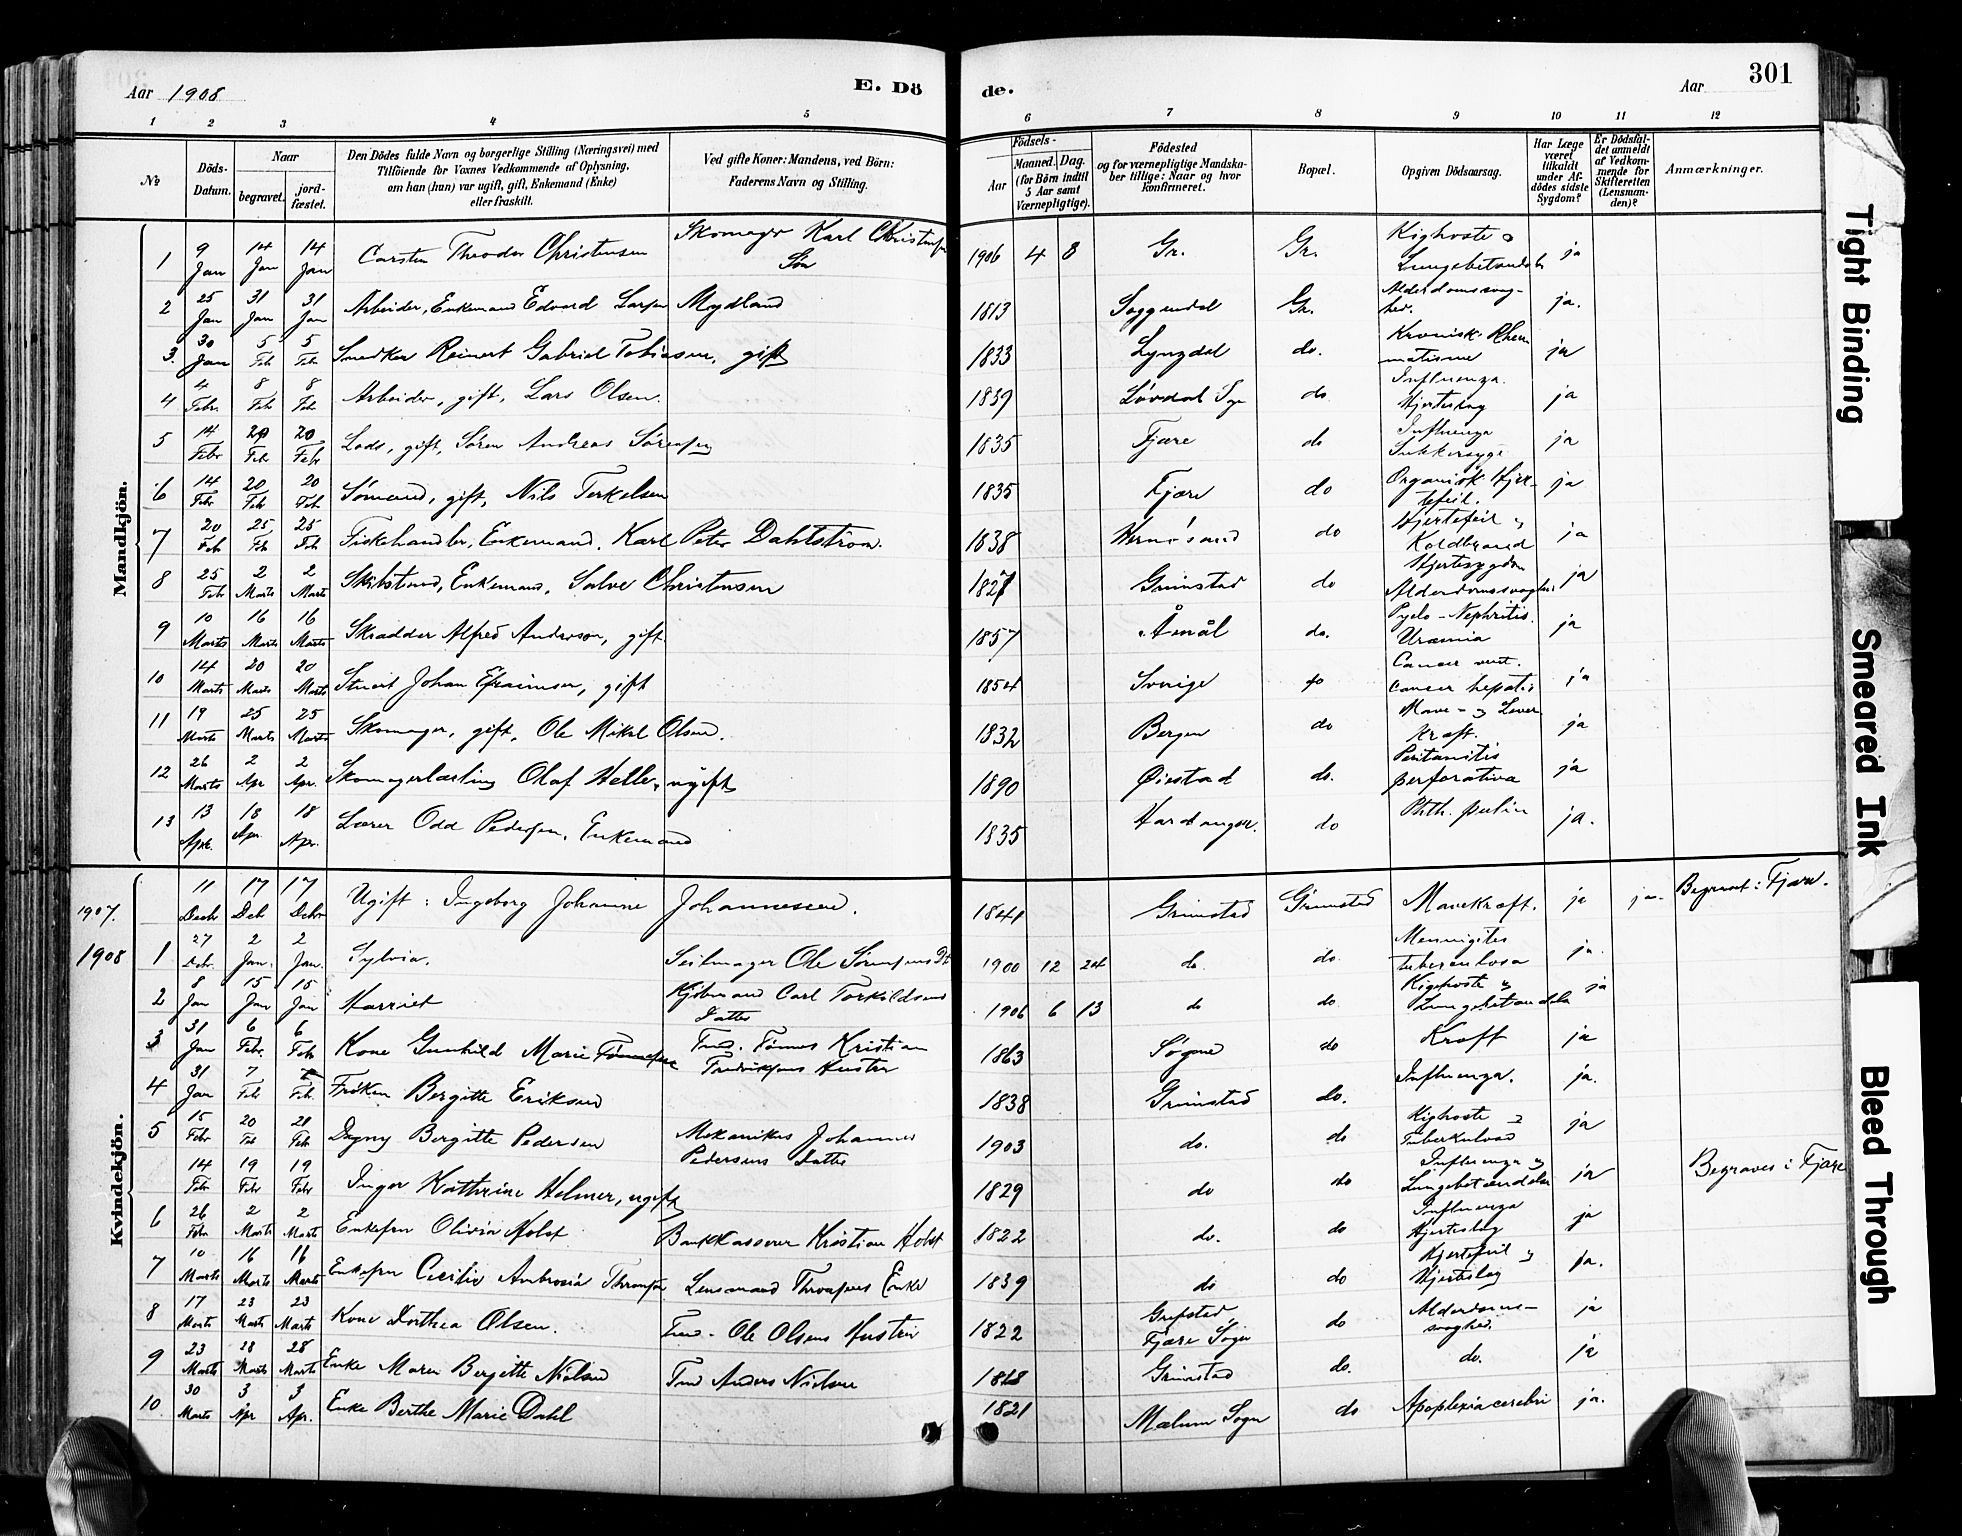 Aar 1908
E. Dö
de.
Aar
301
1 2 3 4 5 6 7 8 9 10 11 12
№
Döds-Datum.
Naar
begravet.
jord-fæstet.
Den Dödes fulde Navn og borgerlige Stilling (Næringsvei) med
Tilföiende for Voxnes Vedkommende af Oplysning,
om han (hun) var ugift, gift, Enkemand (Enke)
eller fraskilt.
Ved gifte Koner: Mandens, ved Börn:
Faderens Navn og Stilling.
Födsels-
Aar
Maaned. Dag.
(for Börn indtil
5 Aar samt
Værnepligtige).
Födested
og for værnepligtige Mandska-
ber tillige: Naar og hvor
konfirmeret.
Bopæl.
Opgiven Dödsaarsag.
Har Læge
været
tilkaldt
under Af-
dödes sidste
Sygdom?
Er Dödsfal-
det anmeldt
af Vedkom-
mende for
Skifteretten
(Lensman-
den)?
Anmærkninger.
Mandkjön.
1 9 Jan 14 Jan 14 Jan Carsten Theodor Christensen Skomager Karl Christensen Søn 1906 4 8 Gr. Gr. Kighoste Lungebetændelse ja
2 25 Jan 31 Jan 31 Jan Arbeider, Enkemand Edvard Larsen Mydland 1813 Soggendal Gr. Alderdomssvaghed. ja.
3. 30 Jan 5 Feb 5 Feb Snedker Reinert Gabriel Tobiasen, gift 1833 Lyngdal do. Kronisk Rheumatisme ja
4 4 Febr. 8 Feb 8 Feb Arbeider, gift, Lars Olsen. 1839 do Influenza. Hjerteslag ja
5 14 Febr 20 Feb 20 Febr Lods, gift, Sören Andreas Sörensen 1835 Fjære do Influenza Sukkersyge ja
6 14 Febr 20 Feb 20 Feb Sömand, gift, Nils Terkelsen 1835 Fjære do Organisk Hjertefeil. ja
7 20 Feb 25 Feb 25 Feb Fiskehandler, Enkemand, Karl Peter Dahlström. 1838 Hernösand do Hjertefeil Koldbrand ja
8 25 Feb 2 Marts 2 Marts Enkemand, Salve Christensen 1827 Grimstad do Hjertesygdom Alderdomssvaghed ja
9 10 Marts 16 Marts 16 Marts Skrædder Alfred Anderson, gift 1857 Åmål do. Pyelo-Nephritis. Uræmia ja
10 14 Marts 20 Marts 20 Marts Stuert Johan Efraimsen, gift 1854 Sverige do Cancer vent. cancer hepatis ja
11 19 Marts 25 Marts 25 Marts Skomager, gift, Ole Mikal Olsen. 1832 Bergen do Mave- og Lever Kræft. ja
12 26 Marts 2 Apr 2 Apr. Skomagerlærling Olaf Helle, ugift 1890 Øiestad do. Peritonitis perforativa ja
13 13 Apr. 18 Apr. 18 Apr. Lærer Odd Pedersen, Enkemand 1835 Hardanger. do Phth. pulm ja.
Kvindekjön.
1907. 11 Decbr 17 Deb 17 Debr Ugift: Ingeborg Johanne Johannessen. 1841 Grimstad Grimstad Mavekræft. ja ja. Begravet i Fjære.
1908 1 27 Debr. 2 Jan. 2 Jan. Sylvia. Seilmager Ole Sörensens Dt 1900 12 24 do. do. Mennigites tuberculosa ja.
2 8 Jan 15 Jan 15 Jan Harriet Kjöbmand Carl Torkildsens Datter 1906 6 13 do do Kighoste Lungebetændelse ja
3 31 Jan 6 Febr. 6 Feb Kone Gunhild Marie Tömmesen Tmd. Tönnes Kristian Fredriksens Hustru 1863 Søgne do Kræft ja
4 31 Jan 7 Feb Feb Fröken Bergitte Eriksen 1838 Grimstad do. Influenza. ja.
5 15 Febr 20 Feb 20 Feb Dagny Bergitte Pedersen Mekanikus Johannes Pedersens Datter 1903 do. do Kighoste Tuberkulose ja
14 Feb 19 Febr 19 Feb Inger Kathrine Helmer, ugift 1829 do do Influenza Lungebetændelse ja Begraves i Fjære
6 26 Febr 2 Marts 2 Marts Enkefru Olivia Holst Bankkasserer Kristian Holst 1822 do. do Influenza Hjerteslag ja
7 10 Marts 16 Marts 16 Marts Enkefru Cecilie Ambrosia Lensmand Enke 1839 do do Hjertefeil Hjerteslag ja.
8 17 Marts 23 Marts 23 Marts Kone Dorthea Olsen. Tmd. Ole Olsens Hustru 1822 Grefstad Fjære Sogn do Alderdomssvaghed. ja
9 23 Marts 28 Marts 28 Marts Enke Maren Bergitte Nielsen Tmd Anders Nielsen 1818 Grimstad do. do. ja
10 30 Marts 3 Apr 3 Apr. Enke Berthe Marie Dahl 1821 Mælum Sogn do Apoplexia cerebri ja.
Tight Binding
Smeared Ink
Bleed Through